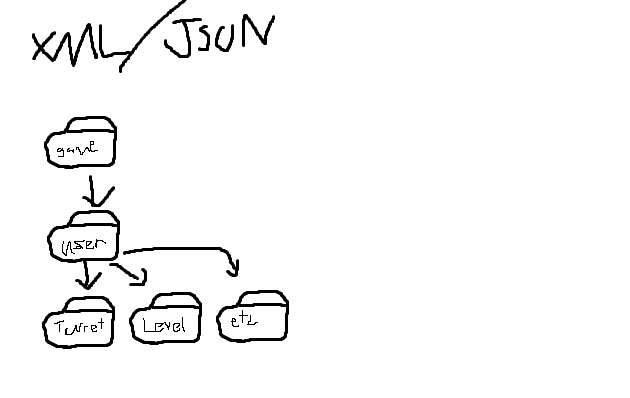 XML/JSON
game
user
Turret
Level
etc